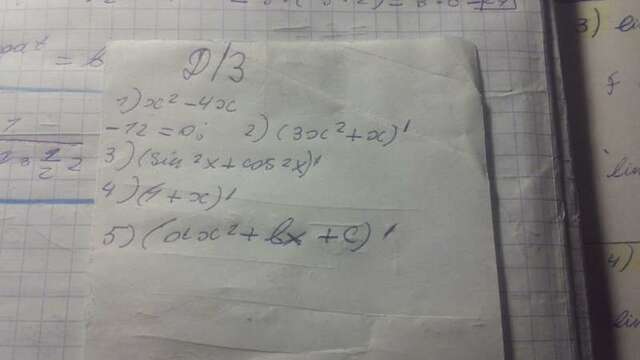 Д/З
1) x² - 4x
- 12 = 0; 2) (3x² + x)'
3) (sin²x + cos²x)'
4) (1 + x)'
5) (ax² + bx + c)'
3) li
4)
lin